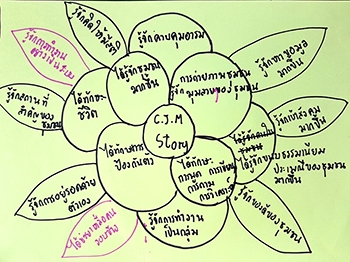 รู้จักคิดใช้สติ
รู้จักควบคุมอารม
รู้จักการทำงาน
อย่างเป็นระบบ
รู้จักหาข้อมูล
มากขึ้น
ได้รู้จักชุมชน
มากขึ้น
การถ่ายภาพชุมชน
รู้จักมุมมองของชุมชน
ได้ทักษะ
ชีวิต
รู้จักสถานที่
สำคัญของ
ชุมชน
รู้จักเข้าสังคม
มากขึ้น
C.J.M
Story
ได้รู้จักคนใน
ชุมชน
มากขึ้น
ป้องกันตัว
ได้ทักษะ
การพูด การเขียน
การถาม
รู้จักขนบธรรมเนียม
ประเพณีของชุมชน
มากขึ้น
รู้จักการอยู่รอดด้วย
ตัวเอง
รู้จักของดีของชุมชน
ได้ช่วยเหลือคน
รอบข้าง
รู้จักการทำงาน
เป็นกลุ่ม